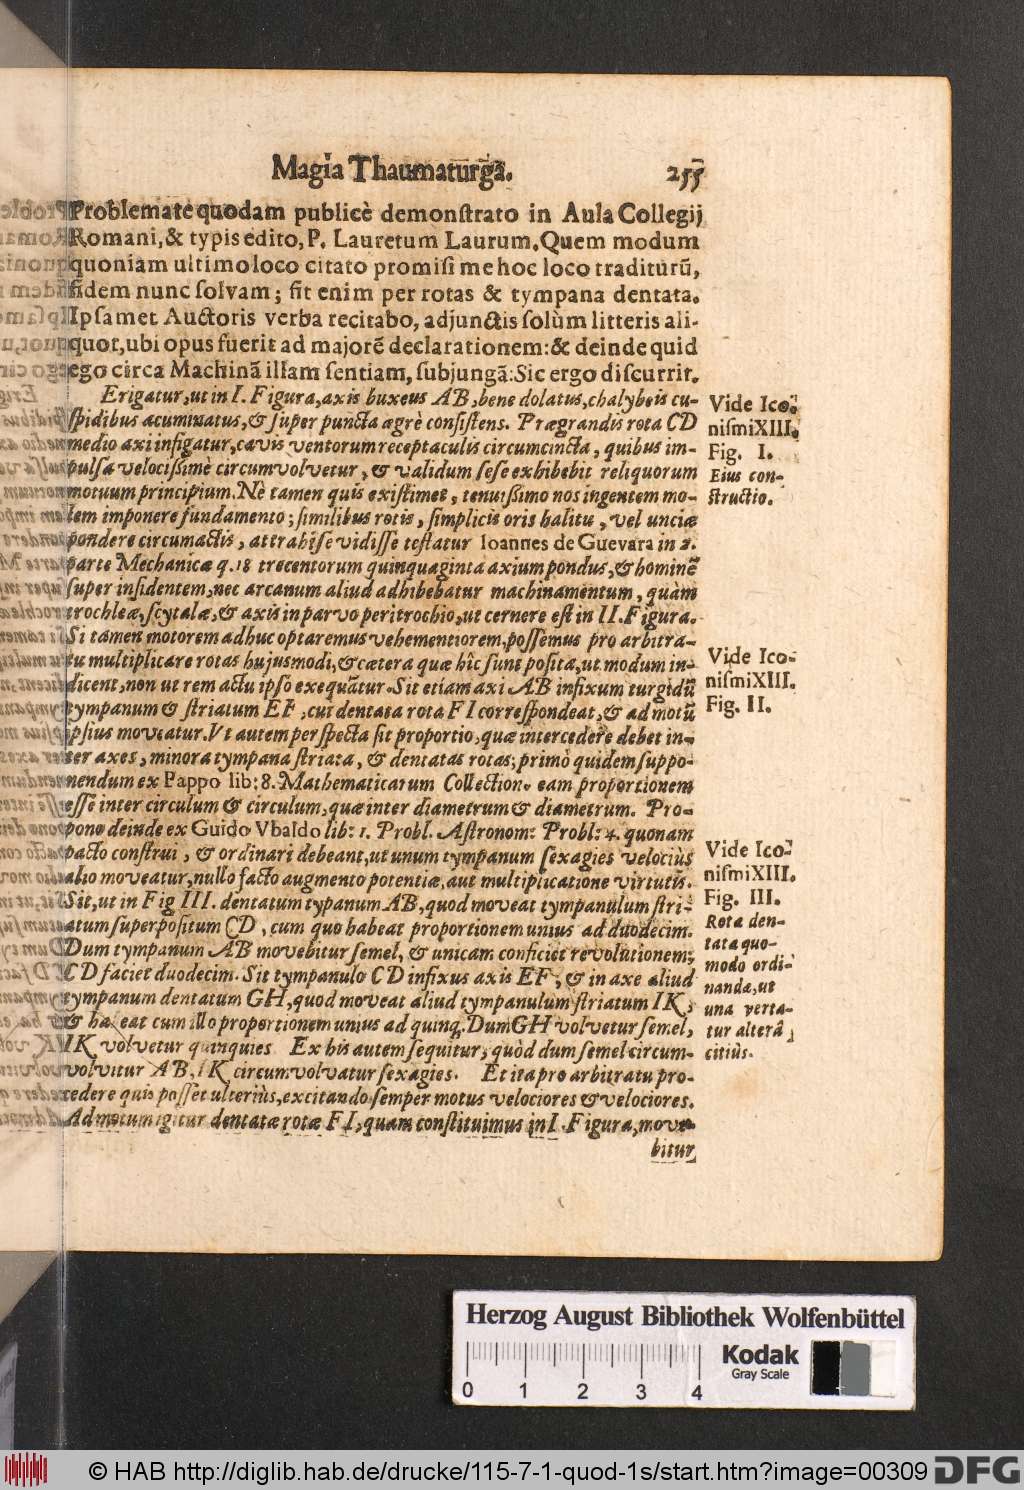 Magia Thaumaturga. 255
Problemate quodam publicè demonſtrato in Aula Collegij
Romani, & typis edito, P. Lauretum Laurum. Quem modum
quoniam ultimo loco citato promiſi me hoc loco traditurũ,
fidem nunc ſolvam; fit enim per rotas & tympana dentata.
Ipſamet Auctoris verba recitabo, adjunctis ſolùm litteris ali-
quot, ubi opus fuerit ad majorẽ declarationem: & deinde quid
ego circa Machinã illam ſentiam, ſubjungã: Sic ergo diſcurrit.
Erigatur, ut in I. Figura, axis buxeus AB, bene dolatus, chalybeis cu-
ſpidibus acuminatus, & ſuper puncta ægrè conſiſtens. Prægrandis rota CD
medio axi infigatur, cavis ventorum receptaculis circumcincta, quibus im-
pulſa velociſſimè circumvolvetur, & validum ſeſe exhibebit reliquorum
motuum principium. Nè tamen quis exiſtimet, tenuiſſimo nos ingentem mo-
lem imponere fundamento; ſimilibus rotis, ſimplicis oris halitu, vel unciæ
pondere circumactis, attrahi ſe vidiſſe teſtatur Ioannes de Guevara in 2.
parte Mechanicæ q. 18 trecentorum quinquaginta axium pondus, & hominẽ
ſuper inſidentem, nec arcanum aliud adhibebatur machinamentum, quàm
trochleæ, ſcytalæ, & axis in parvo peritrochio, ut cernere eſt in II. Figura.
Si tamen motorem adhuc optaremus vehementiorem, poſſemus pro arbitra-
tu multiplicare rotas hujusmodi, & cætera quæ hîc ſunt poſita, ut modum in-
dicent, non ut rem actu ipſo exequãtur. Sit etiam axi AB infixum turgidũ
tympanum & ſtriatum EF, cui dentata rota FI correſpondeat, & ad motũ
ipſius moveatur. Vt autem perſpecta ſit proportio, quæ intercedere debet in-
ter axes, minora tympana ſtriata, & dentatas rotas; primò quidem ſuppo-
nendum ex Pappo lib: 8. Mathematicarum Collection. eam proportionem
eſſe inter circulum & circulum, quæ inter diametrum & diametrum. Pro-
pono deinde ex Guido Vbaldo lib: 1. Probl. Aſtronom: Probl: 4. quonam
pacto conſtrui, & ordinari debeant, ut unum tympanum ſexagies velociùs
alio moveatur, nullo facto augmento potentiæ, aut multiplicatione virtutis.
Sit, ut in Fig III. dentatum typanum AB, quod moveat tympanulum ſtri-
atum ſuperpoſitum CD, cum quo habeat proportionem unius ad duodecim.
Dum tympanum AB movebitur ſemel, & unicam conficiet revolutionem,
CD faciet duodecim. Sit tympanulo CD infixus axis EF, & in axe aliud
tympanum dentatum GH, quod moveat aliud tympanulum ſtriatum IK,
& habeat cum illo proportionem unius ad quinq. Dum GH volvetur ſemel,
IK volvetur quinquies Ex his autem ſequitur, quòd dum ſemel circum-
volvitur AB, IK circumvolvatur ſexagies. Et ita pro arbitratu pro-
cedere quis poſſet ulteriùs, excitando ſemper motus velociores & velociores.
Ad motum igitur dentatæ rotæ FI, quam conſtituimus in I. Figura, move-
bitur
Vide Ico-
niſmi XIII.
Fig. I.
Eius con-
ſtructio.
Vide Ico-
niſmi XIII.
Fig. II.
Vide Ico-
niſmi XIII.
Fig. III.
Rota den-
tata quo-
modo ordi-
nanda, ut
una verta-
tur alterâ
citiùs.
Herzog August Bibliothek Wolfenbüttel
0 1 2 3 4
Kodak
Gray Scale
© HAB http://diglib.hab.de/drucke/115-7-1-quod-1s/start.htm?image=00309
DFG